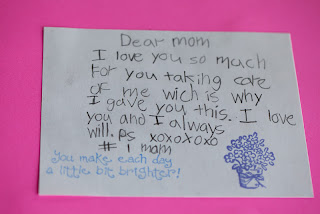 Dear mom
I love you so much
For you taking care
OF me wich is why
I gave you this. I love
you and I always
will. Ps xoxoxoxo
# 1 mom
You make each day
a little bit brighter!